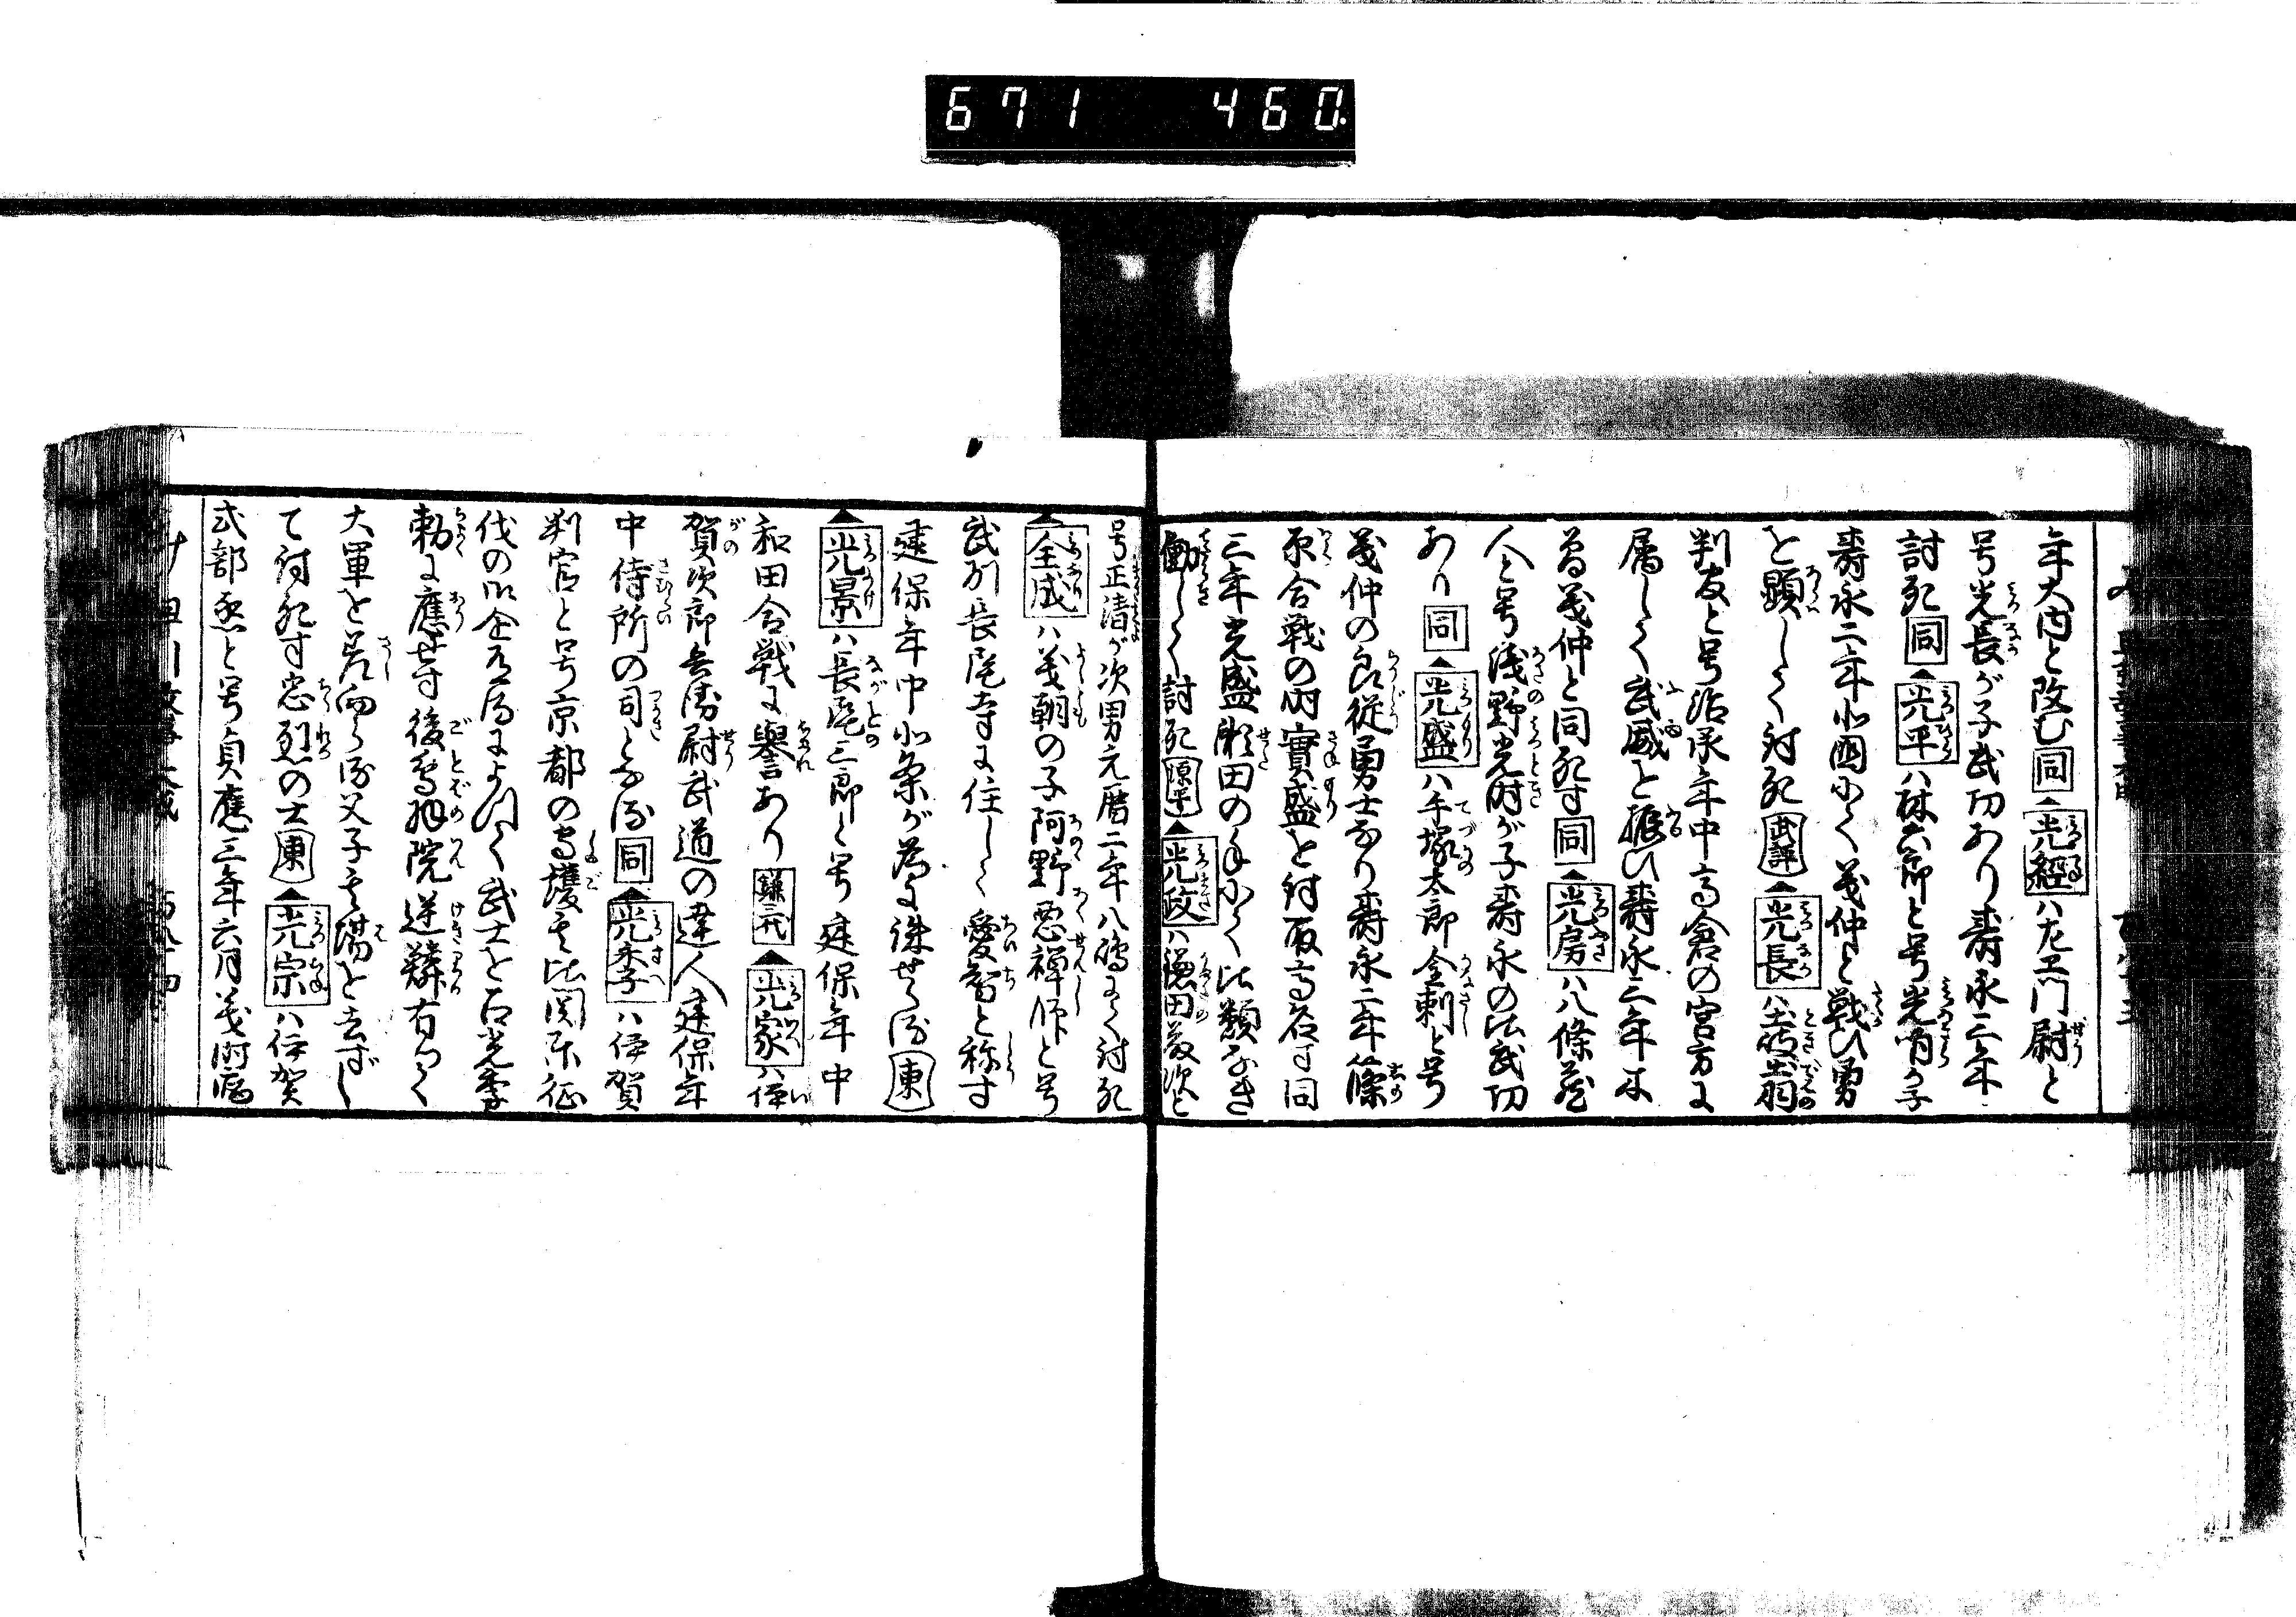 671 460.
年大内と改む同▲光經ハ左エ門尉と
号光長が子武功あり壽永二年
討死同▲光平ハ林六郎と号光明が子
壽永二年北国にて義仲と戦ひ勇
を顕しく討死武評▲光長ハ土岐出羽
判官と号治承年中高倉の宮方に
属しく武威を振ひ壽永二年木
曽義仲と同死す同▲光房ハ八條蔵
人と号浅野光時が子壽永の比武功
あり同▲光盛ハ手塚太郎金刺と号
義仲の良従勇士なり壽永二年篠
原合戦の時實盛を討取高名す同
三年光盛勢田の手にて比類なき
働しく討死源平▲光政ハ鎌田藤次と
号正清が次男元暦二年八嶋にて討死
▲全成ハ義朝の子阿野悪禅師と号
武刕長尾寺に住しく愛智と称す
建保年中北条が為に誅せらる東
▲光景ハ長尾三郎と号建保年中
和田合戦に譽あり鎌三代▲光家ハ伊
賀次郎兵衛尉武道の達人建保年
中侍所の司となる同▲光季ハ伊賀
判官と号京都の守護す比関東征
伐の御企有るによつて武士を召光季
勅に應せず後鳥羽院逆鱗有つて
大軍を差向らる父子其場を去ずし
て討死す忠烈の士東▲光宗ハ伊賀
式部丞と号貞應三年六月義時病